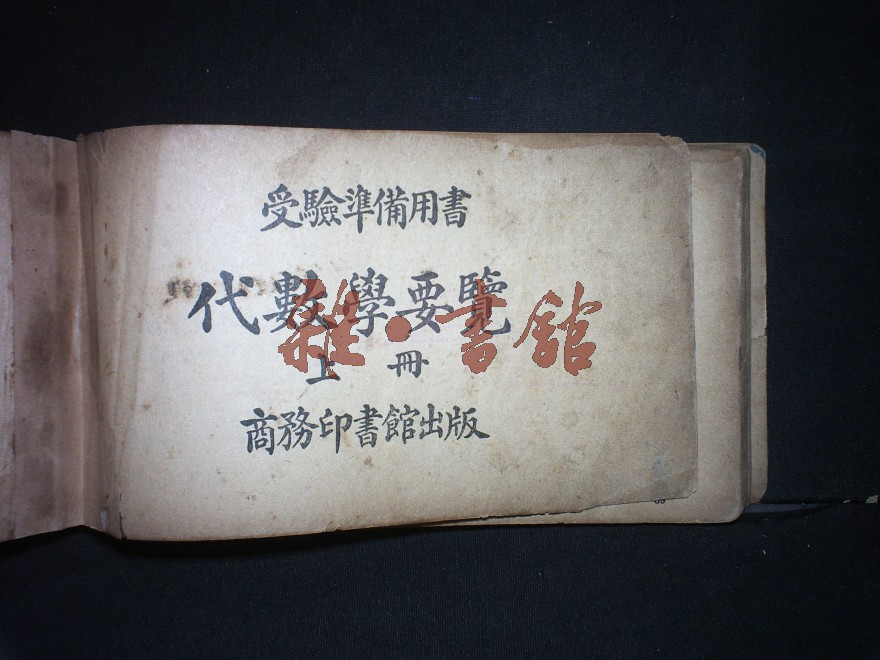 受驗準備用書
代數學要覽
雜·書館
上冊
商務印書館出版